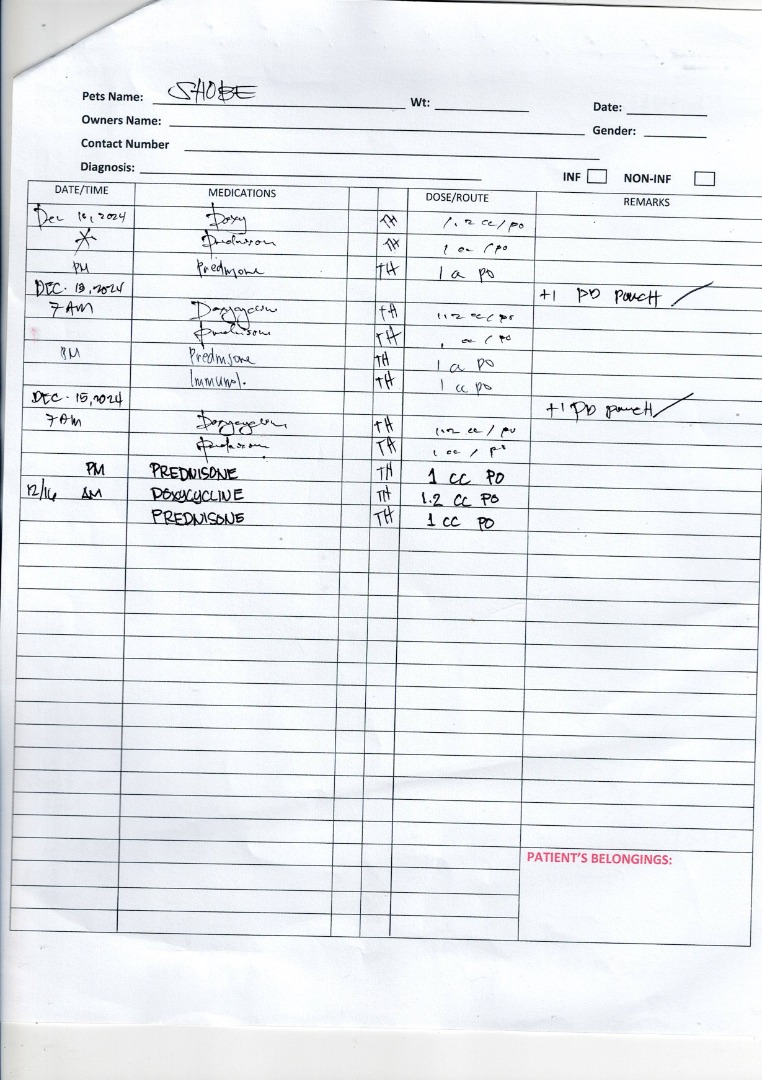 Pets Name: SHOBE Wt: Date:
Owners Name: Gender:
Contact Number
Diagnosis: INF NON-INF
DATE/TIME MEDICATIONS DOSE/ROUTE REMARKS
Dec 2024 Doxy TH 1.2 cc/po
TH 1 cc/po
PM Prednisone TH 1 cc po
DEC. 13, 2024 +1 PD pouch
7 AM Doxycycline TH 1.2 cc/po
TH 1 cc/po
PM Prednisone TH 1 cc po
Immunol. TH 1 cc po
DEC. 15, 2024 +1 PD pouch
7 AM Doxycycline TH 1.2 cc/po
TH 1 cc/po
PM PREDNISONE TH 1 CC PO
12/16 AM DOXYCYCLINE TH 1.2 CC PO
PREDNISONE TH 1 CC PO
PATIENT'S BELONGINGS: